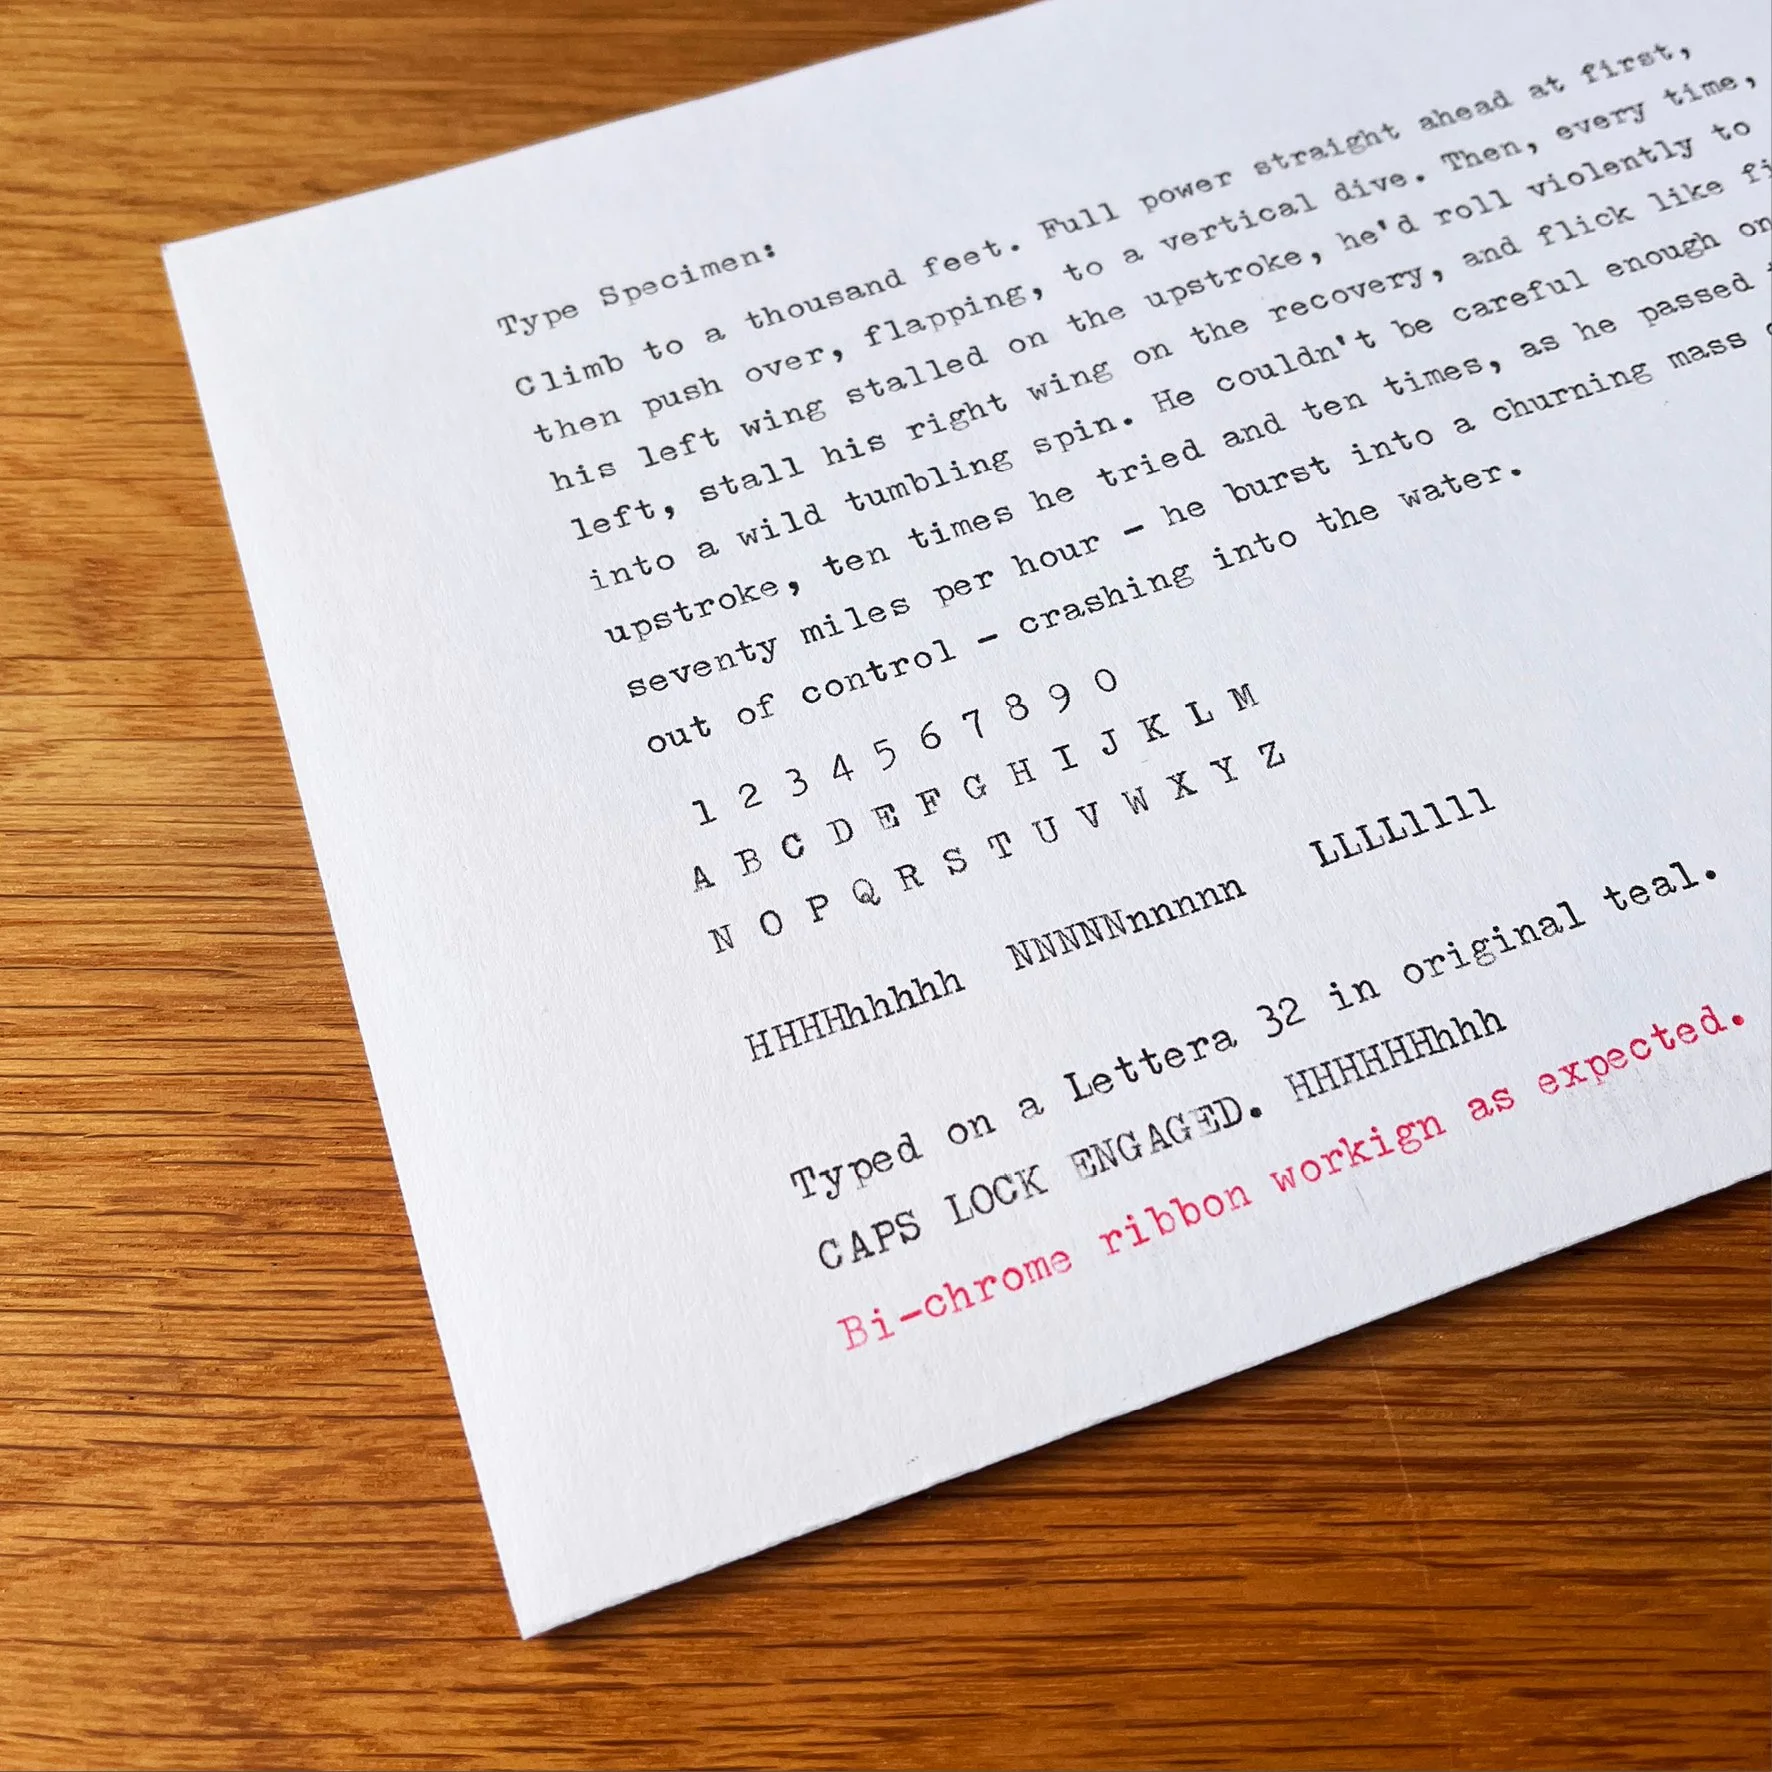 Type Specimen:
Climb to a thousand feet. Full power straight ahead at first,
then push over, flapping, to a vertical dive. Then, every time,
his left wing stalled on the upstroke, he'd roll violently to
left, stall his right wing on the recovery, and flick like
into a wild tumbling spin. He couldn't be careful enough on
upstroke, ten times he tried and ten times, as he passed
seventy miles per hour - he burst into a churning mass
out of control - crashing into the water.
1 2 3 4 5 6 7 8 9 0
A B C D E F G H I J K L M
N O P Q R S T U V W X Y Z
HHHHhhhhh NNNNNnnnnn LLLLllll
Typed on a Lettera 32 in original teal.
CAPS LOCK ENGAGED. HHHHHHhhh
Bi-chrome ribbon workign as expected.